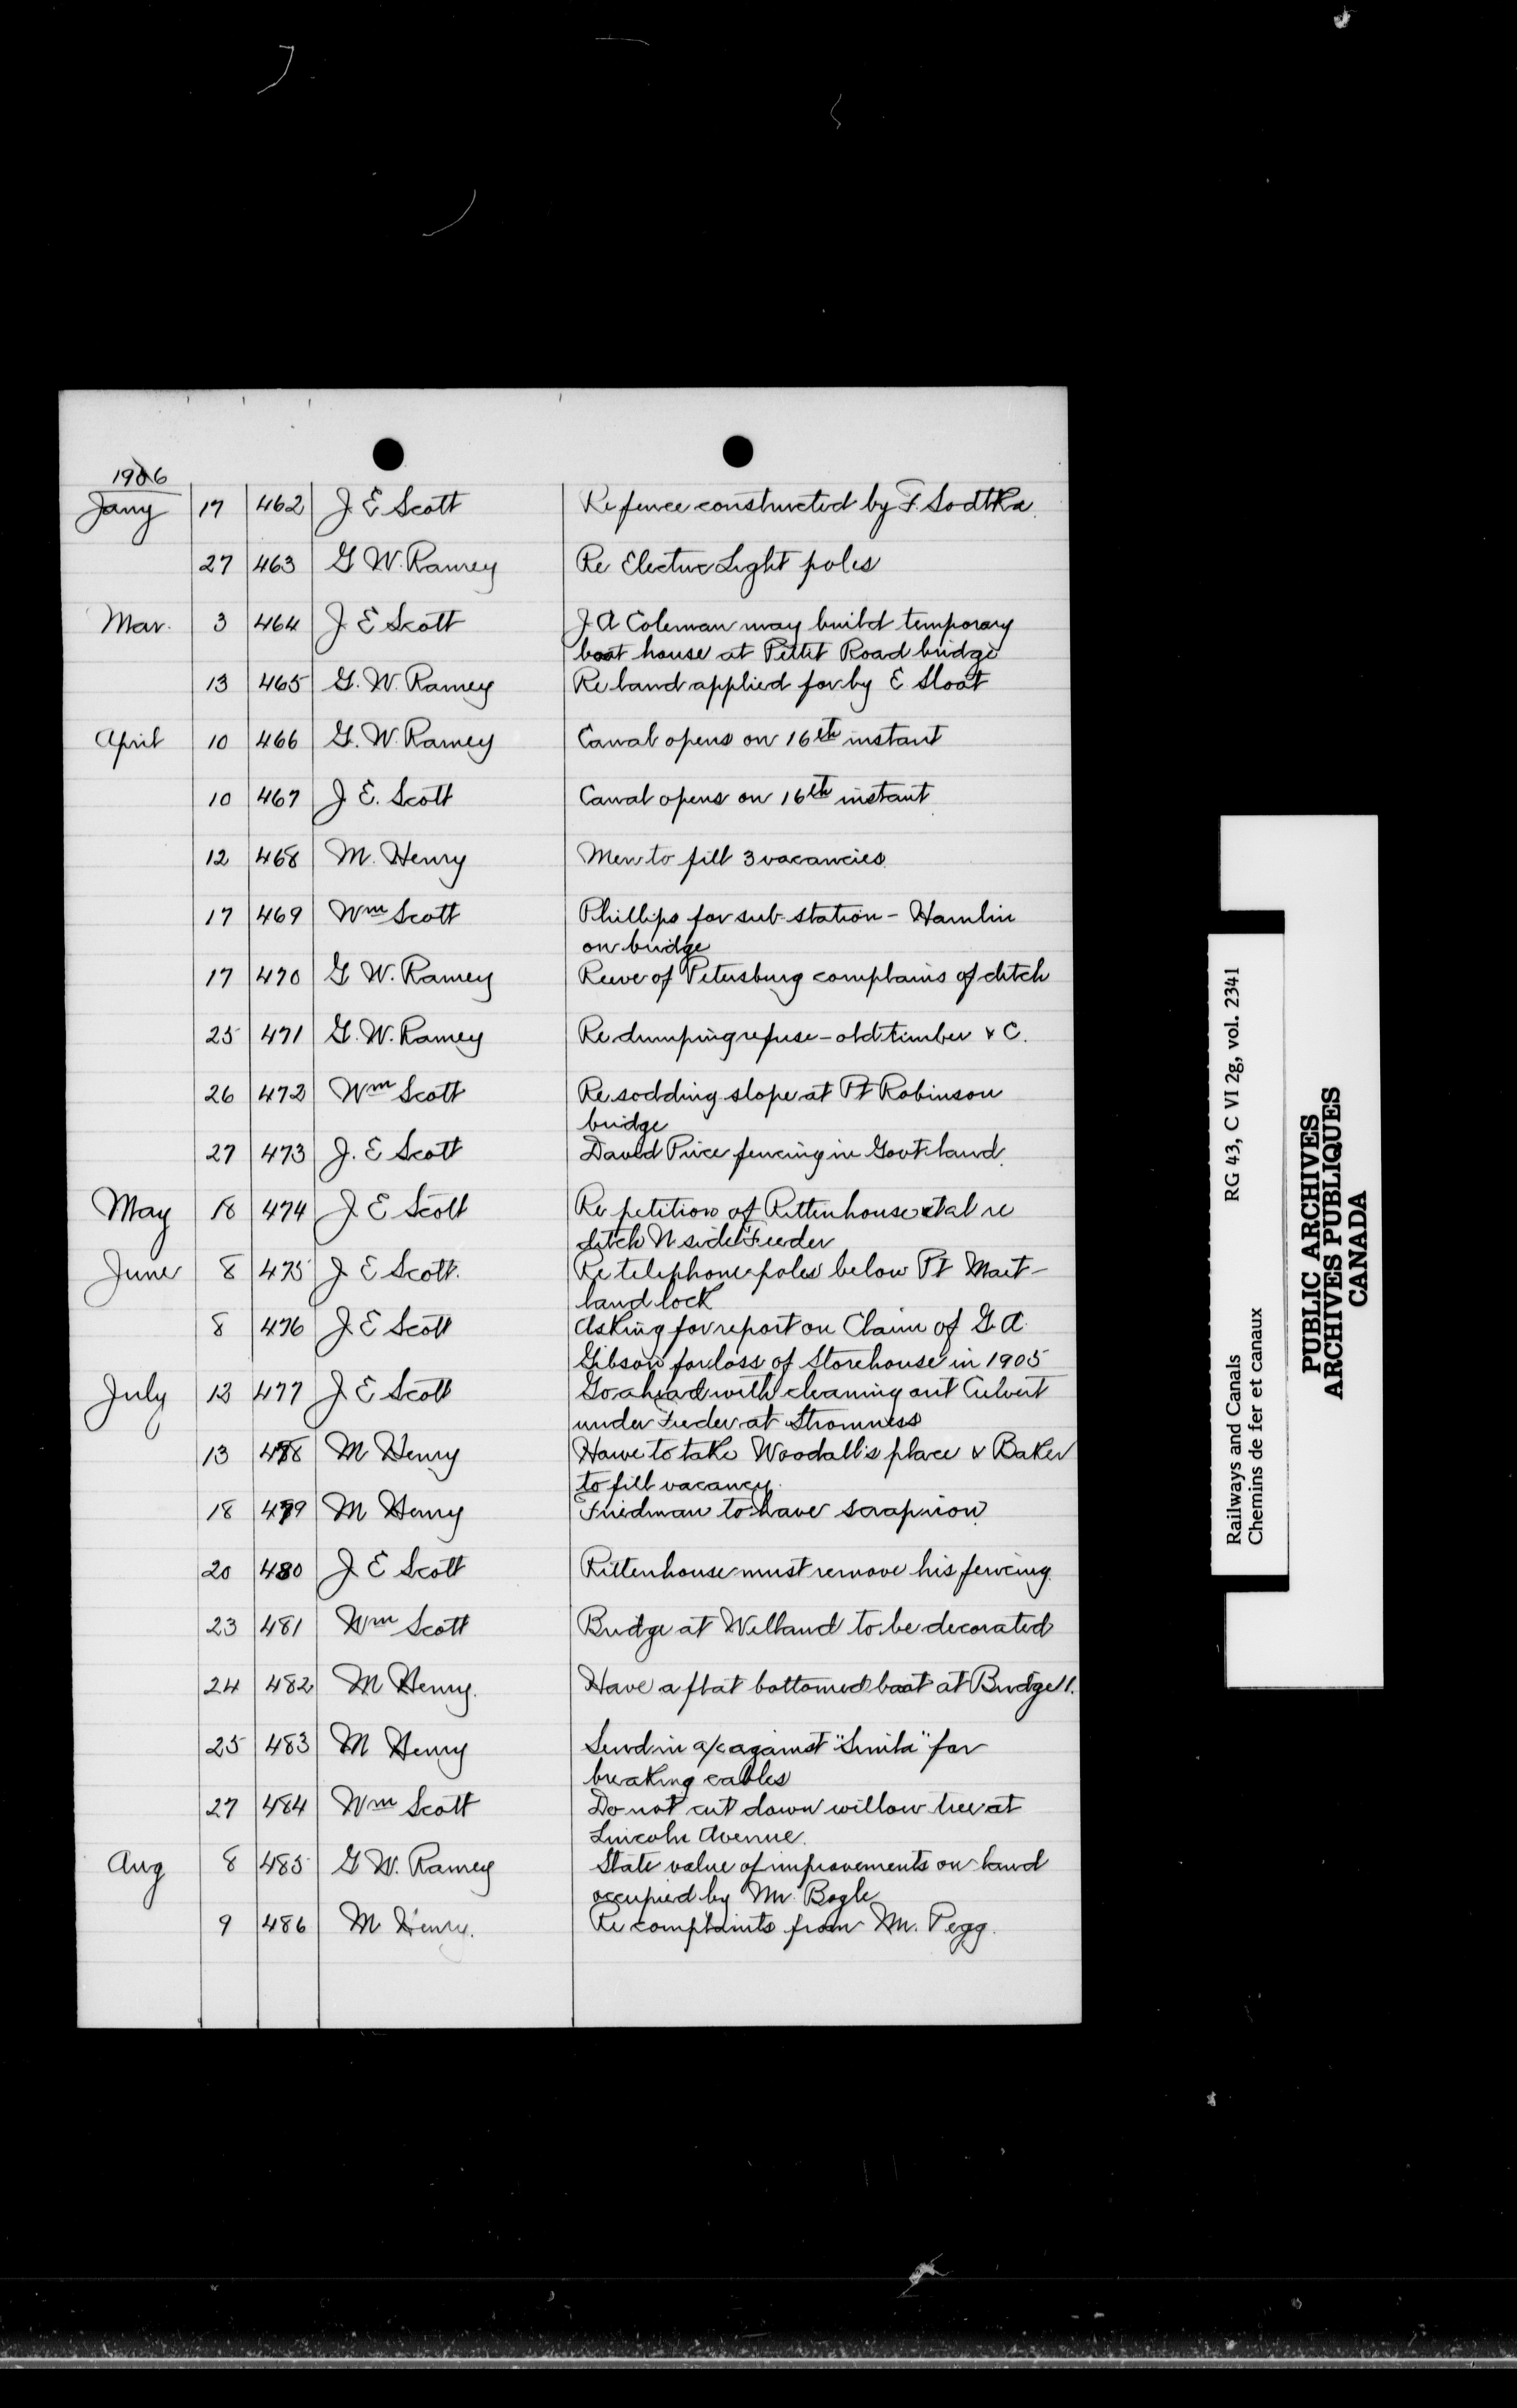 1906
Jany 17 462 J E Scott Re fence constructed by F. Sodtka
27 463 G W. Ramey Re Electric Light poles
Mar. 3 464 J. E Scott J A Coleman may build temporary
boat house at Pettit Road bridge
13 465 G. W. Ramey Re land applied for by E Sloat
April 10 466 G. W. Ramey Canal opens on 16th instant
10 467 J E. Scott Canal opens on 16th instant
12 468 M. Henry Men to fill 3 vacancies
17 469 Wm Scott Phillips for sub-station - Hamlin
on bridge
17 470 G W. Ramey Reeve of Petersburg complains of ditch
25 471 G. W. Ramey Re dumping refuse - old timber & C.
26 472 Wm Scott Re sodding slope at Pt Robinson
bridge
27 473 J. E Scott David Price fencing in Govt land.
May 18 474 J. E Scott Re petition of Rittenhouse et al re
ditch N side Feeder
June 8 475 J E Scott. Re telephone poles below Pt Mait-
land lock
8 476 J E Scott Asking for report on Claim of G. A.
Gibson for loss of Storehouse in 1905
July 12 477 J E Scott Go ahead with cleaning out Culvert
under Feeder at Stromness
13 478 M Henry to take Woodall's place & Baker
to fill vacancy.
18 479 M Henry Friedman to have scrap iron
20 480 J E Scott Rittenhouse must remove his fencing.
23 481 Wm Scott Bridge at Welland to be decorated
24 482 M Henry. Have a flat bottomed boat at Bridge 11.
25 483 M Henry Send in a/c against for
breaking cables
27 484 Wm Scott Do not cut down willow tree at
Lincoln Avenue.
Aug 8 485 G W. Ramey State value of improvements on land
occupied by Mr. Bogle
9 486 M Henry. Re complaints from Mr. Pegg.
Railways and Canals RG 43, C VI 2g, vol. 2341
Chemins de fer et canaux
PUBLIC ARCHIVES
ARCHIVES PUBLIQUES
CANADA